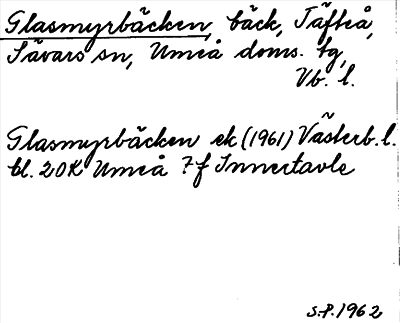 Glasmyrbäcken, bäck, Täfteå,
Sävars sn, Umeå doms. tg,
Vb. l.
Glasmyrbäcken ek (1961) Västerb. l.
bl. 20K Umeå 7f Innertavle
S.P. 1962